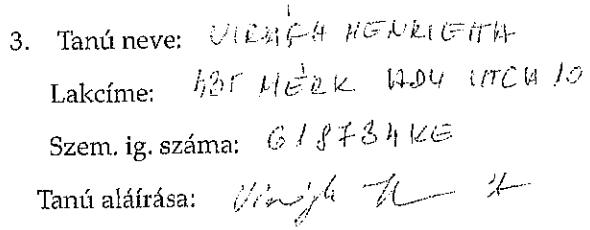 3. Tanú neve: VIRÁGH HENRIETTA
Lakcíme: MÉRK ADY UTCA 10
Szem. ig. száma: 618734KE
Tanú aláírása: Virágh H